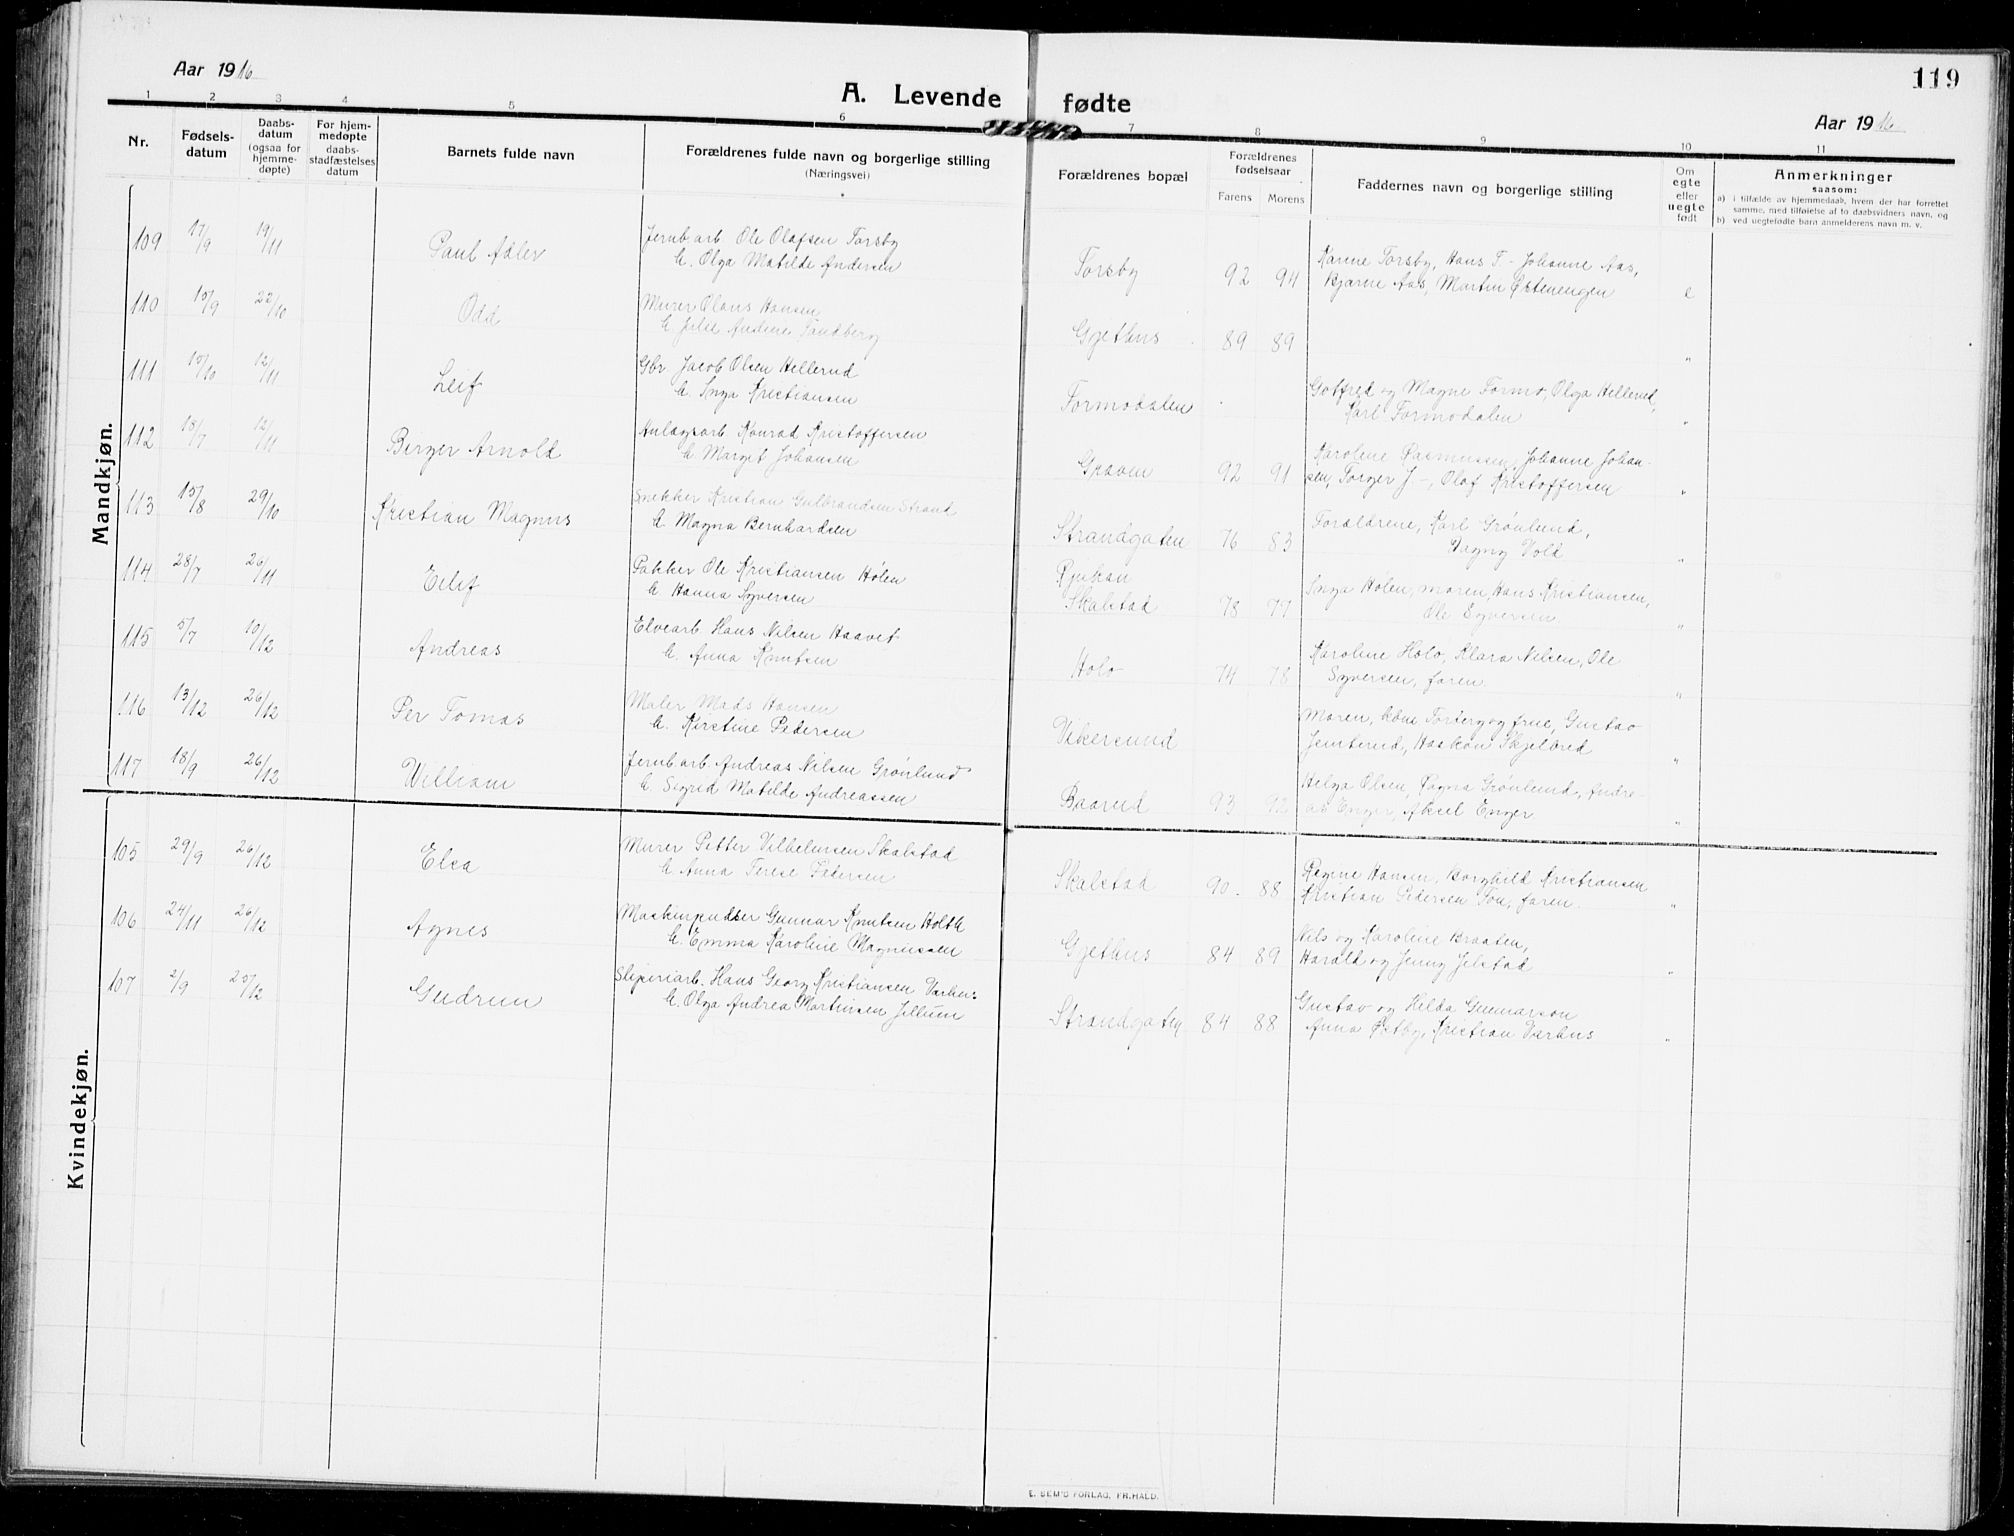 Aar 1916
A. Levende fødte
119
Aar 1916
1 2 3 4 5 6 7 8 9 10 11
Nr.
Fødsels-
datum
Daabs-
datum
(ogsaa for
hjemme-
døpte)
For hjem-
medøpte
daabs-
stadfæstelses
datum
Barnets fulde navn
Forældrenes fulde navn og borgerlige stilling
(Næringsvei)
Forældrenes bopæl
Forældrenes
fødselsaar
Farens Morens
Faddernes navn og borgerlige stilling
Om
egte
eller
uegte
født
Anmerkninger
saasom:
a) i tilfælde av hjemmedaab, hvem der har forrettet
samme, med tilføielse af to daabsvidners navn, og
b) ved uegtefødte barn anmelderens navn m. v.
Mandkjøn.
109 17/9 19/11 Paul Adler Jernb.arb. Ole Olafsen Torsby Torsby 92 94 Karine Torsby, Hans T- Johanne Aas, e
h. Olga Matilde Andersen Bjarne Aas, Martin Østenengen
110 15/9 22/10 Odd Murer Olaus Hansen Gjethus 89 89 "
h. Julie Andrine Sandberg
111 15/10 12/11 Leif Gbr Jacob Olsen Hellerud Formodalen Gotfred og Magne Formo, Olga Hellerud, "
h. Inga Kristiansen Karl Formodalen
112 15/7 12/11 Birger Arnold Anlægsarb Konrad Kristoffersen Graven 92 91 Karoline Rasmussen, Johanne Johan-
h. Margit Johansen sen, Torger J-, Olaf Kristoffersen "
113 15/8 29/10 Kristian Magnus Snekker Kristian Gulbrandsen Strand Strandgaten 76 83 Forældrene, Karl Grønlund, "
h. Magna Bernhardsen Dagny Vold
114 28/7 26/11 Eilif Pakker Ole Kristiansen Holen Rjukan
h. Hanna Syversen Skalstad 78 77 Inga Holen, moren, Hans Kristiansen, "
Ole Syversen
115 5/7 10/12 Andreas Elvearb. Hans Nilsen Haavet Holo 74 78 Karoline Holo, Klara Nilsen, Ole "
h. Anna Knutsen Syversen, faren.
116 13/12 26/12 Per Tomas Maler Mads Hansen Vikersund Moren, og frue, Gustav "
h. Kirstine Pedersen Jemterud, Haakon Skjelbred
117 18/9 26/12 William Jernb.arb Andreas Nilsen Grønlund Baarud 93 92 Helga Olsen, Ragna Grønlund, Andre-
h. Sigrid Matilde Andreassen as Enger, Aksel Enger "
Kvindekjøn.
105 29/9 26/12 Elsa Murer Petter Vilhelmsen Skalstad Skalstad 90. 88 Regine Hansen, Borghild Kristiansen "
h. Anna Terese Pedersen Kristian Pedersen Ton, faren.
106 24/11 26/12 Agnes Maskinpudser Gunnar Knutsen Holth Gjethus 84 89 Nils og Karoline Braaten, "
h. Emma Karoline Magnussen Harald og Jenny Jelstad
107 2/9 25/12 Gudrun Sliperiarb. Hans Georg Kristiansen Varhus Strandgaten 84 88 Gustav og Hilda Gunnarson "
h. Olga Andrea Martinsen Anna Østby, Kristian Varhus
E. SEM'S FORLAG, FR.HALD.